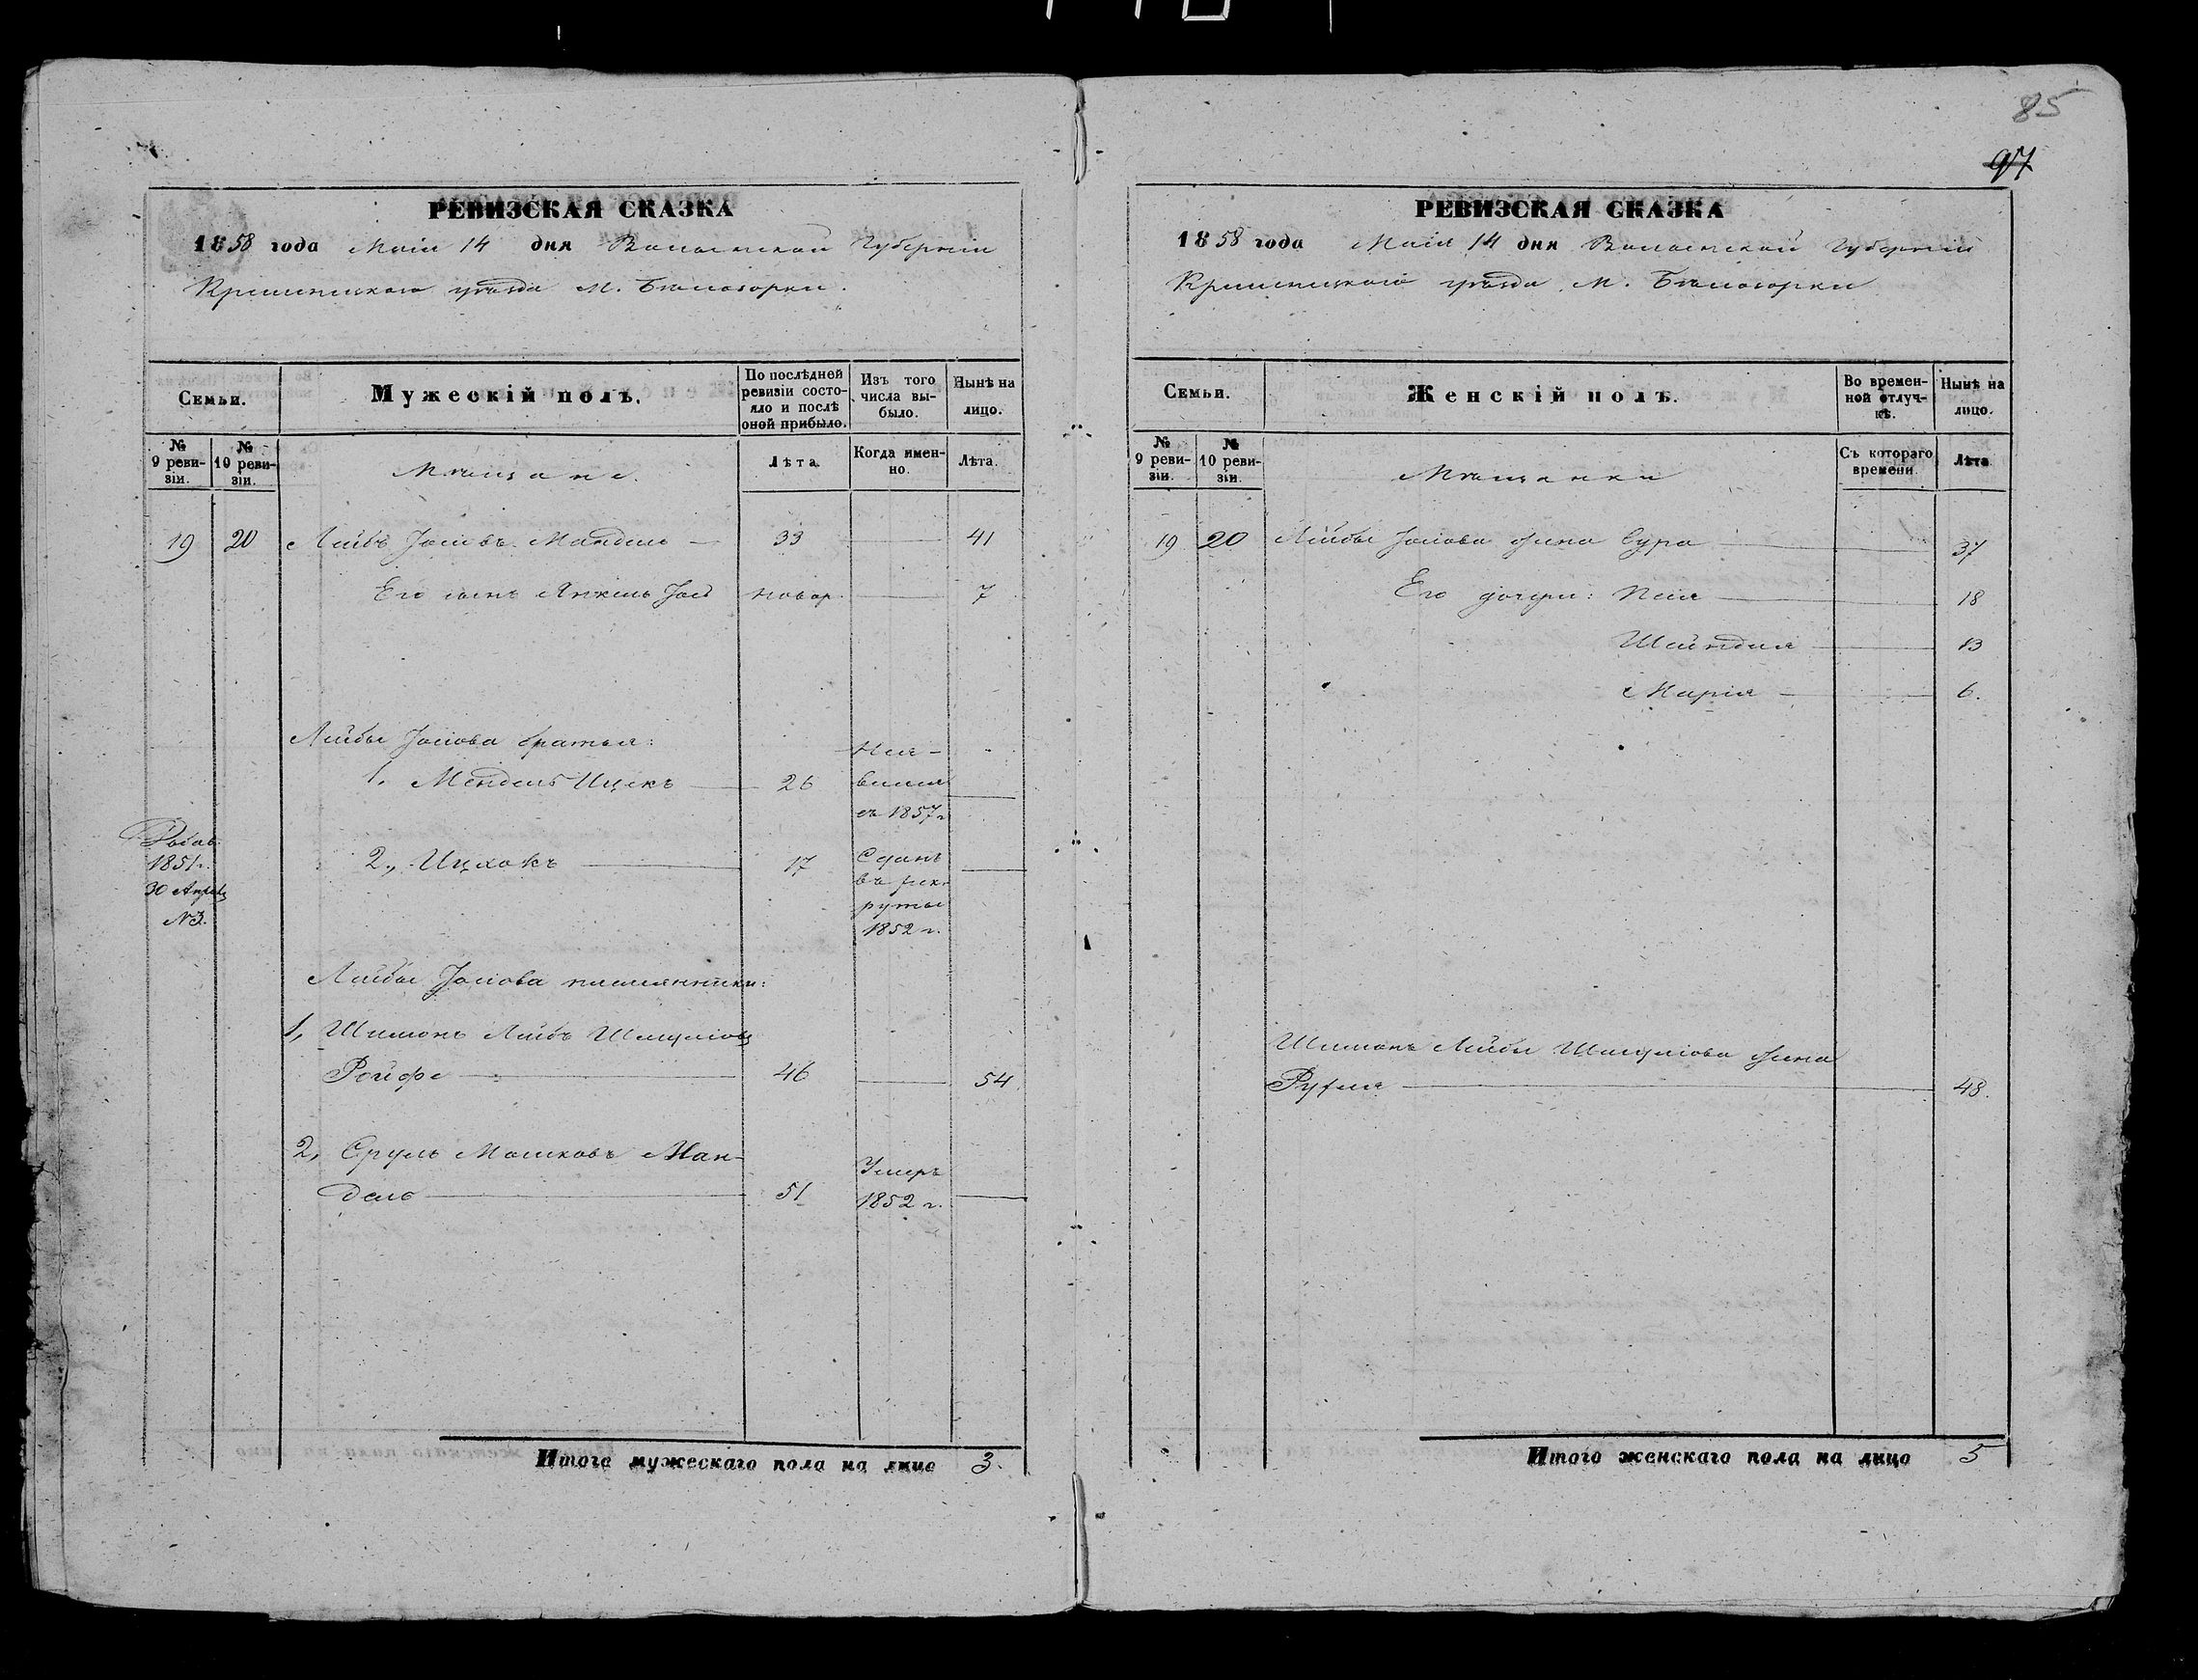 85
97
РЕВИЗСКАЯ СКАЗКА
1858 года Маія 14 дня Волынской Губерніи
Кременецкаго уѣзда М. Бѣлозорки.
Семьи.
Мужескій полъ.
По послѣдней ревизіи состояло и послѣ оной прибыло.
Изъ того числа выбыло.
Нынѣ на лицо.
№ 9 ревизіи.
№ 10 ревизіи.
Мѣщане.
Лѣта
Когда именно.
Лѣта.
19 20 Лейбъ Іосіовъ Мандель 33 41
Его сынъ Янкель Іось новор. 7
Лейбы Іосіова братья:
1. Мендель Ицекъ 26
с 1857 г
1851 г.
30 Апрѣл
№3.
2, Ицхокъ 17 Сданъ
въ рек
руты
1852 г.
Лейбы Іосіова племянники:
1, Шимонъ Лейбъ Шмуліов
Ройфе 46 54
2, Сруль Мошковъ Ман-
дель 51 Умеръ
1852 г.
Итого мужескаго пола на лицо 3.
РЕВИЗСКАЯ СКАЗКА
1858 года Маія 14 дня Волынской Губерніи
Кременецкаго уѣзда М. Бѣлозорки
Семьи.
Женскій полъ.
Во временной отлучкѣ.
Нынѣ на лицо.
№ 9 ревизіи.
№ 10 ревизіи.
Мѣщанки
Съ котораго времени.
Лѣта
19 20 Лейбы Іосіова жена Сура 37
Его дочери: Песя 18
Шейндля 13
Марія 6.
Шимонъ Лейбы Шмуліова жена
48.
Итого женскаго пола на лицо 5